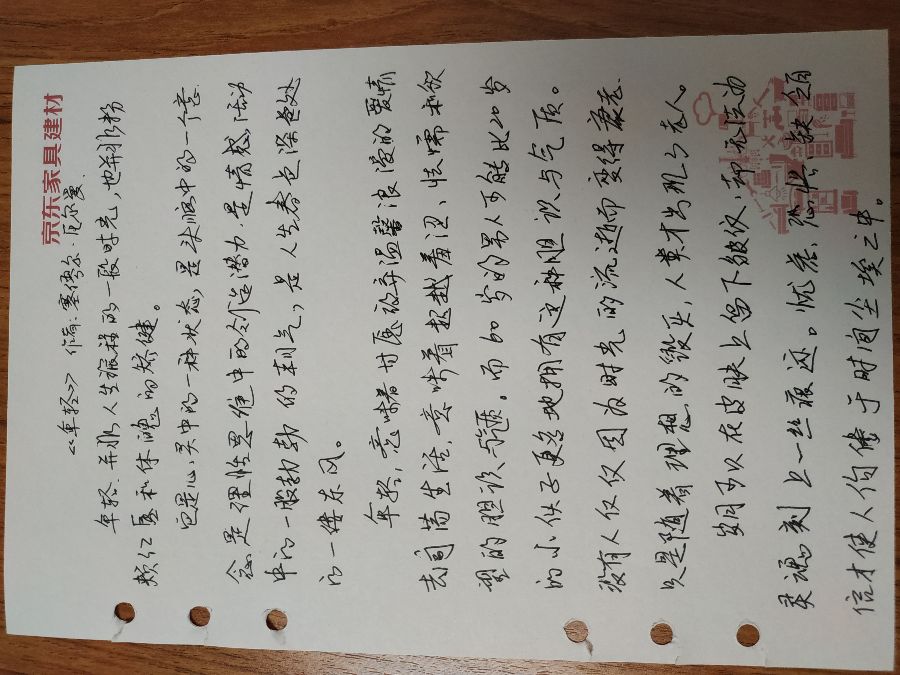 京东家具建材
《年轻》 作者:塞缪尔·厄尔曼
年轻,并非人生旅程的一段时光,也并非粉
颊红唇和体魄的矫健。
它是心灵中的一种状态,是头脑中的一个意
念,是理性思维中的创造潜力,是情感活动
中的一股勃勃的朝气,是人生春色深处
的一缕东风。
年轻,意味着甘愿放弃温馨浪漫的爱情
去闯荡生活,意味着超越羞涩、怯懦和欲
望的胆识与气质。而60岁的男人可能比20岁
的小伙子更多地拥有这种胆识与气质。
没有人仅仅因为时光的流逝而变得衰老
只是随着理想的毁灭,人类才出现了老人。
岁月可以在皮肤上留下皱纹,却无法为
灵魂刻上一丝痕迹。忧虑、恐惧、缺乏自
信才使人佝偻于时间尘埃之中。